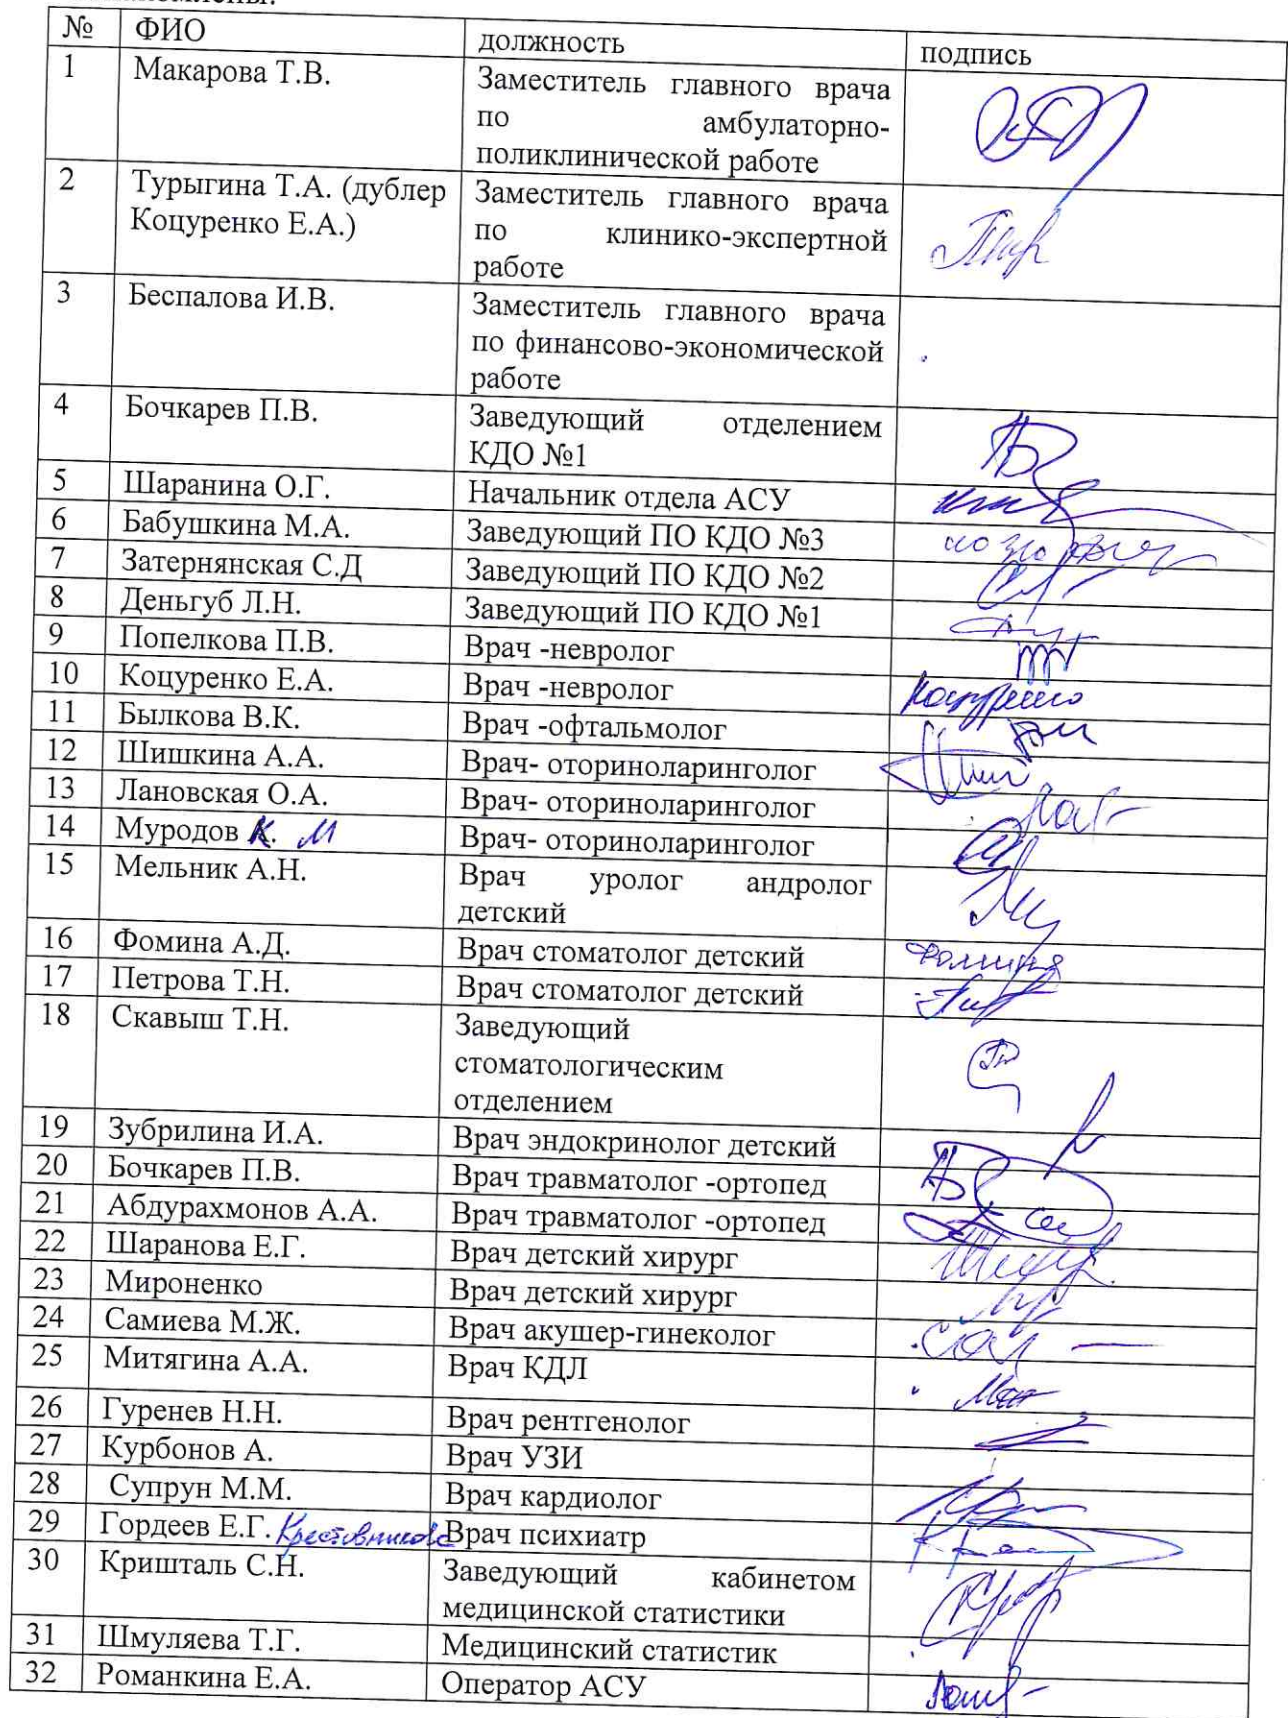 № ФИО должность подпись
1 Макарова Т.В. Заместитель главного врача
по амбулаторно-
поликлинической работе
2 Турыгина Т.А. (дублер Заместитель главного врача
Коцуренко Е.А.) по клинико-экспертной
работе
3 Беспалова И.В. Заместитель главного врача
по финансово-экономической
работе
4 Бочкарев П.В. Заведующий отделением
КДО №1
5 Шаранина О.Г. Начальник отдела АСУ
6 Бабушкина М.А. Заведующий ПО КДО №3
7 Затернянская С.Д Заведующий ПО КДО №2
8 Деньгуб Л.Н. Заведующий ПО КДО №1
9 Попелкова П.В. Врач -невролог
10 Коцуренко Е.А. Врач -невролог Коцуренко
11 Былкова В.К. Врач -офтальмолог
12 Шишкина А.А. Врач- оториноларинголог
13 Лановская О.А. Врач- оториноларинголог
14 Муродов К. М Врач- оториноларинголог
15 Мельник А.Н. Врач уролог андролог
детский
16 Фомина А.Д. Врач стоматолог детский Фомина
17 Петрова Т.Н. Врач стоматолог детский
18 Скавыш Т.Н. Заведующий
стоматологическим
отделением
19 Зубрилина И.А. Врач эндокринолог детский
20 Бочкарев П.В. Врач травматолог -ортопед
21 Абдурахмонов А.А. Врач травматолог -ортопед
22 Шаранова Е.Г. Врач детский хирург
23 Мироненко Врач детский хирург
24 Самиева М.Ж. Врач акушер-гинеколог
25 Митягина А.А. Врач КДЛ
26 Гуренев Н.Н. Врач рентгенолог
27 Курбонов А. Врач УЗИ
28 Супрун М.М. Врач кардиолог
29 Гордеев Е.Г. Крестовникова Врач психиатр
30 Кришталь С.Н. Заведующий кабинетом
медицинской статистики
31 Шмуляева Т.Г. Медицинский статистик
32 Романкина Е.А. Оператор АСУ